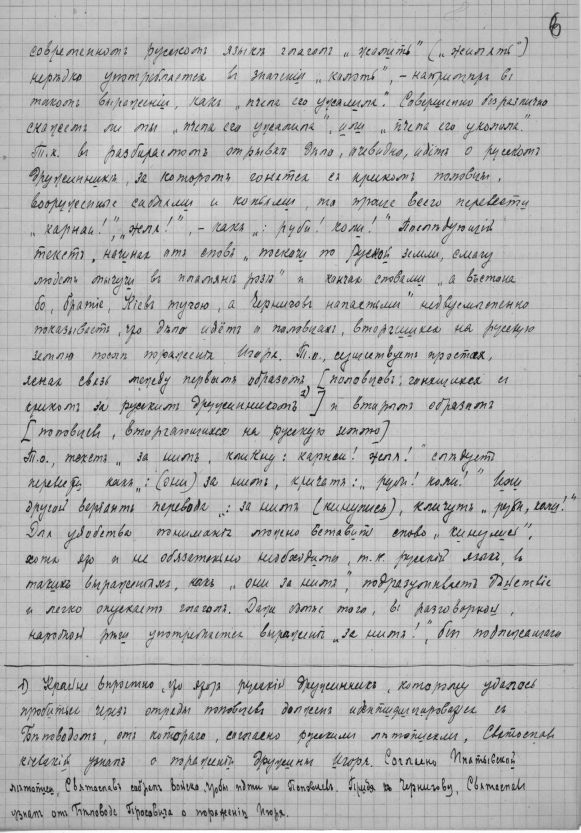 6
современномъ русскомъ языкѣ глаголъ „жалить" („жилять")
нерѣдко употребляется въ значеніи „колоть", – напримѣръ въ
такомъ выраженіи, какъ „пчела его ужалила". Совершенно безразлично
скажемъ ли мы „пчела его ужалила", или „пчела его уколола."
Т.к. въ разбираемомъ отрывкѣ дѣло, очевидно, идётъ о русскомъ
дружинникѣ, за которомъ гонятся съ крикомъ половцы,
вооруженные саблями и копьями, то проще всего перевести
„карнаи!", „жля!", – какъ „: руби! коли!" Послѣдующій
текстъ, начиная отъ словъ „поскочи по Руской земли, смагу
людемъ мычучи въ пламянѣ розѣ" и кончая словами „а въстона
бо, братіе, Кіевъ тугою, а Черниговъ напастьми" недвусмысленно
показываетъ, что дѣло идётъ о половцахъ, вторгшихся на русскую
землю послѣ пораженія Игоря. Т.о., существуетъ простая,
ясная связь между первымъ образомъ, [половцевъ, гонящихся съ
крикомъ за русскимъ дружинникомъ 1)] и вторымъ образомъ
[половцевъ, вторгающихся на русскую землю]
Т.о., текстъ „за нимъ, кликну: карнаи! жля!" слѣдуетъ
перевести какъ „: (они) за нимъ, кричатъ: „руби! коли!" Или
другой варіантъ перевода „: за нимъ (кинулись), кличутъ „руби, коли!"
Для удобства пониманія можно вставить слово „кинулись",
хотя это и не обязательно необходимо, т.к. русскій языкъ, въ
такихъ выраженіяхъ, какъ „они за нимъ", подразумѣваетъ дѣйствіе
и легко опускаетъ глаголъ. Даже болѣе того, въ разговорной,
народной рѣчи употребляется выраженіе „за нимъ!", безъ подлежащаго
1) Крайне вѣроятно, что этотъ русскій дружинникъ, которому удалось
пробиться черезъ отряды половцевъ долженъ идентифицироваться съ
Бѣловодомъ, отъ котораго, согласно русскимъ лѣтописямъ, Святославъ
кіевскій узналъ о пораженіи дружины Игоря. Согласно Ипатьевской
лѣтописи, Святославъ собралъ войско, чтобы идти на половцевъ. Придя къ Чернигову, Святославъ
узналъ отъ Бѣловода Просовича о пораженіи Игоря.